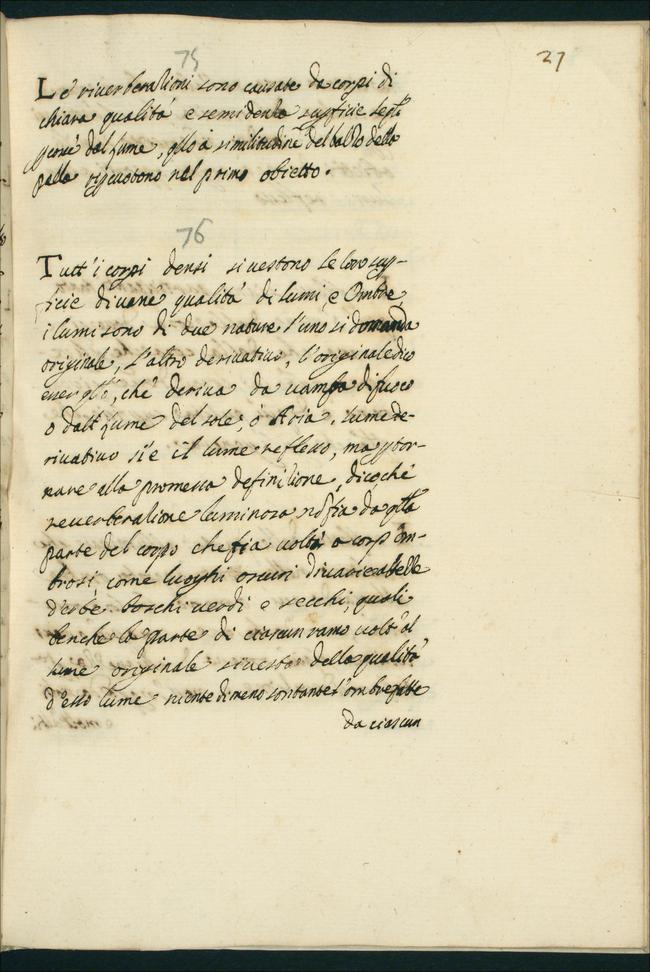 27
75
Le riverberationi sono causate da corpi di
chiara qualità e semidensa supficie
dal lume, qllo à similitudine del balzo della
palla ripcuotono nel primo obietto.
76
Tutt'i corpi densi si vestono le loro sup-
ficie di varie qualità di lumi, e Ombre
i lumi sono di due nature l'uno si domanda
originale, l'altro derivativo, l'originale dico
esser qllo, che deriva da vampa di fuoco
o dall lume del sole, ó Aria, lume de-
rivativo si'e il lume reflesso, ma p ritor-
nare alla promessa definitione, dico, chè
reverberatione luminosa nō fia da qlla
parte del corpo che fia volta a corpi om-
brosi, come luoghi oscuri di varie altezze
d'erbe boschi verdi e secchi, quali
benche la parte di ciascun ramo volt'al
lume originale si vesta della qualità
d'esso lume niente dimeno son tante l'ombre fatte
da ciascun